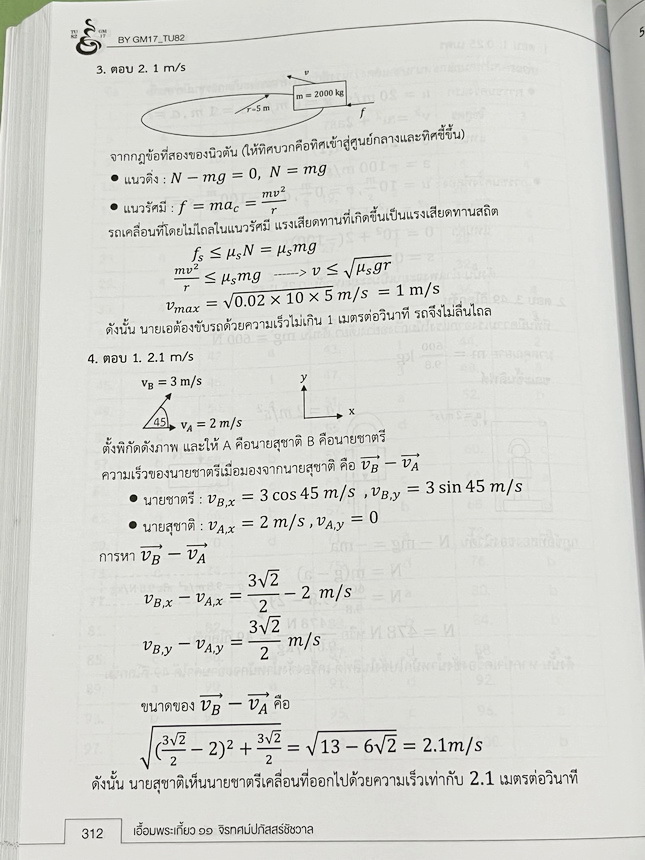 TU 82 GM 17 BY GM17_TU82
3. ตอบ 2. 1 m/s
v
m = 2000 kg
r=5 m
f
จากกฎข้อที่สองของนิวตัน (ให้ทิศบวกคือทิศเข้าสู่ศูนย์กลางและทิศชี้ขึ้น)
● แนวดิ่ง : N − mg = 0, N = mg
● แนวรัศมี : f = ma_c = mv²/r
รถเคลื่อนที่โดยไม่ไถลในแนวรัศมี แรงเสียดทานที่เกิดขึ้นเป็นแรงเสียดทานสถิต
f_s ≤ μ_sN = μ_smg
mv²/r ≤ μ_smg ------> v ≤ √(μ_sgr)
v_max = √(0.02 × 10 × 5) m/s = 1 m/s
ดังนั้น นายเอต้องขับรถด้วยความเร็วไม่เกิน 1 เมตรต่อวินาที รถจึงไม่ลื่นไถล
4. ตอบ 1. 2.1 m/s
v_B = 3 m/s
y
45
v_A = 2 m/s
x
ตั้งพิกัดดังภาพ และให้ A คือนายสุชาติ B คือนายชาตรี
ความเร็วของนายชาตรีเมื่อมองจากนายสุชาติ คือ v_B⃗ − v_A⃗
● นายชาตรี : v_B,x = 3 cos 45 m/s , v_B,y = 3 sin 45 m/s
● นายสุชาติ : v_A,x = 2 m/s , v_A,y = 0
การหา v_B⃗ − v_A⃗
v_B,x − v_A,x = 3√2/2 − 2 m/s
v_B,y − v_A,y = 3√2/2 m/s
ขนาดของ v_B⃗ − v_A⃗ คือ
√((3√2/2 − 2)² + 3√2/2) = √(13 − 6√2) = 2.1m/s
ดังนั้น นายสุชาติเห็นนายชาตรีเคลื่อนที่ออกไปด้วยความเร็วเท่ากับ 2.1 เมตรต่อวินาที
312 เอื้อมพระเกี้ยว ๑๑ จิรทศม์ปภัสสร์ชัชวาล
5